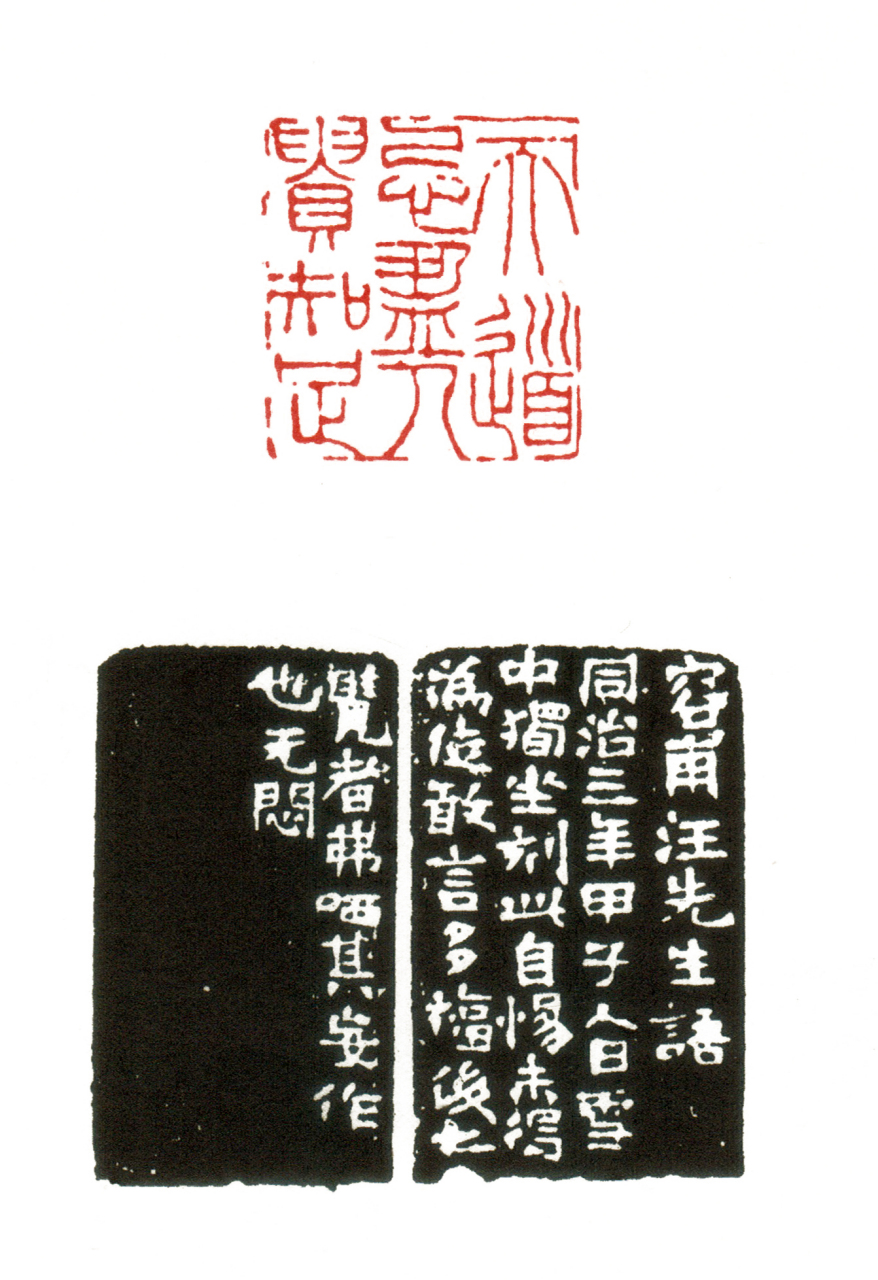 天道
忌盈人
貴知足
容甫汪先生語
同治三年甲子人日雪
中獨坐刻此自惕未得
為敢言多福後之
覽者弗哂其妄作
也无悶